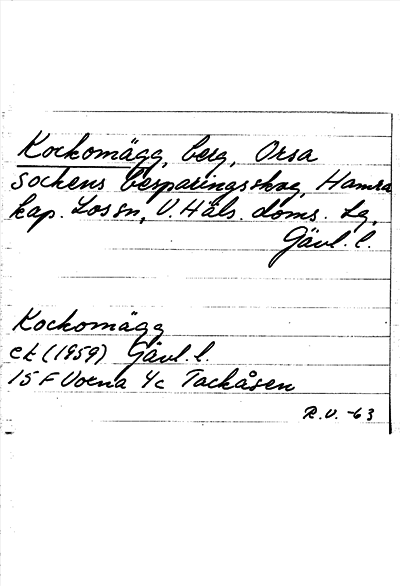 Kockomägg, berg, Orsa
sockens besparingsskog, Hamra
kap. Los sn, V. Häls. doms. lg,
Gävl. l.
Kockomägg
ek (1959) Gävl. l.
15 F Voxna 4c Tackåsen
R.V. -63